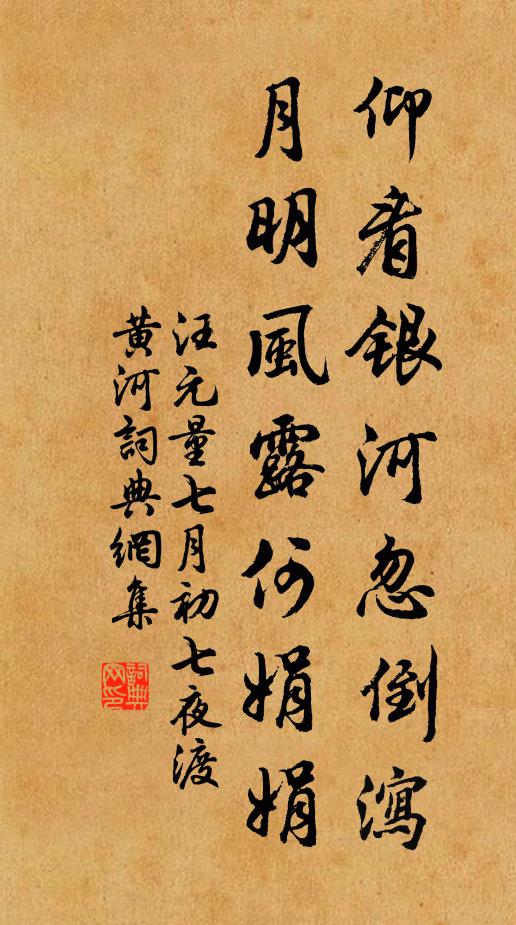 仰看銀河忽倒瀉
月明風露何娟娟
汪元量七月初七夜渡
黄河詞典網集
詞典网印